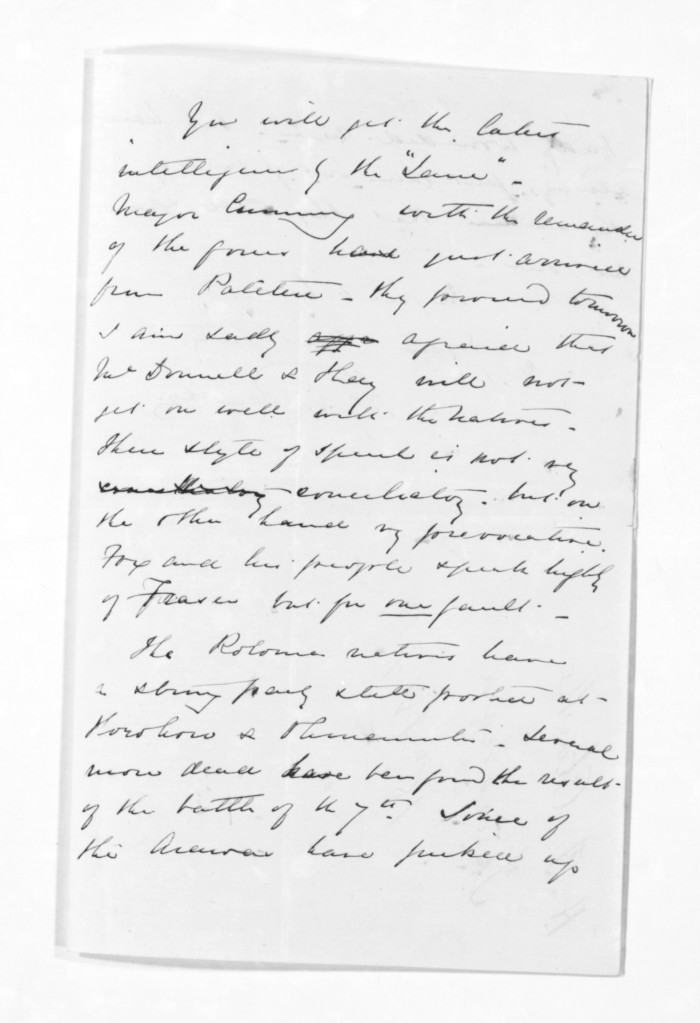 You will get the latest
intelligence by the
Major with the remainder
of the force have just arrived
from they proceed tomorrow
I am sadly afraid that
McDonnell & they will not
get on well with the natives -
Their style of speech is not very
conciliatory - but on
the other hand very provocative.
Fox and his people speak highly
of Fraser but for one fault -
The Rotorua natives have
a strong party still posted at
& - Several
more dead have been found the result
of the battle of the 7th. Some of
the Arawa have picked up